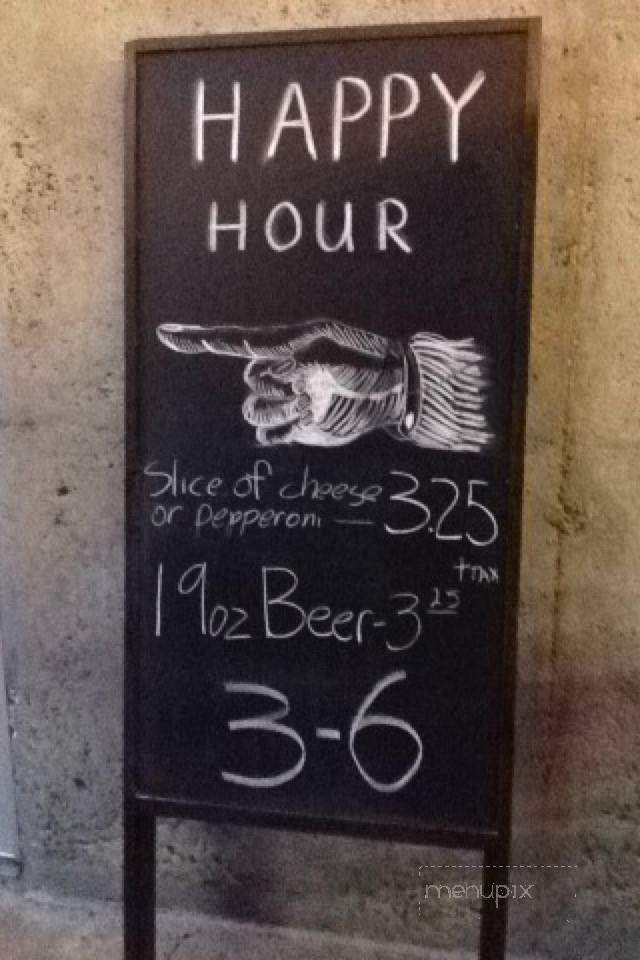 HAPPY
HOUR
Slice of cheese
or pepperoni — 3.25
+TAX
19oz Beer-3 25
3-6
menupix